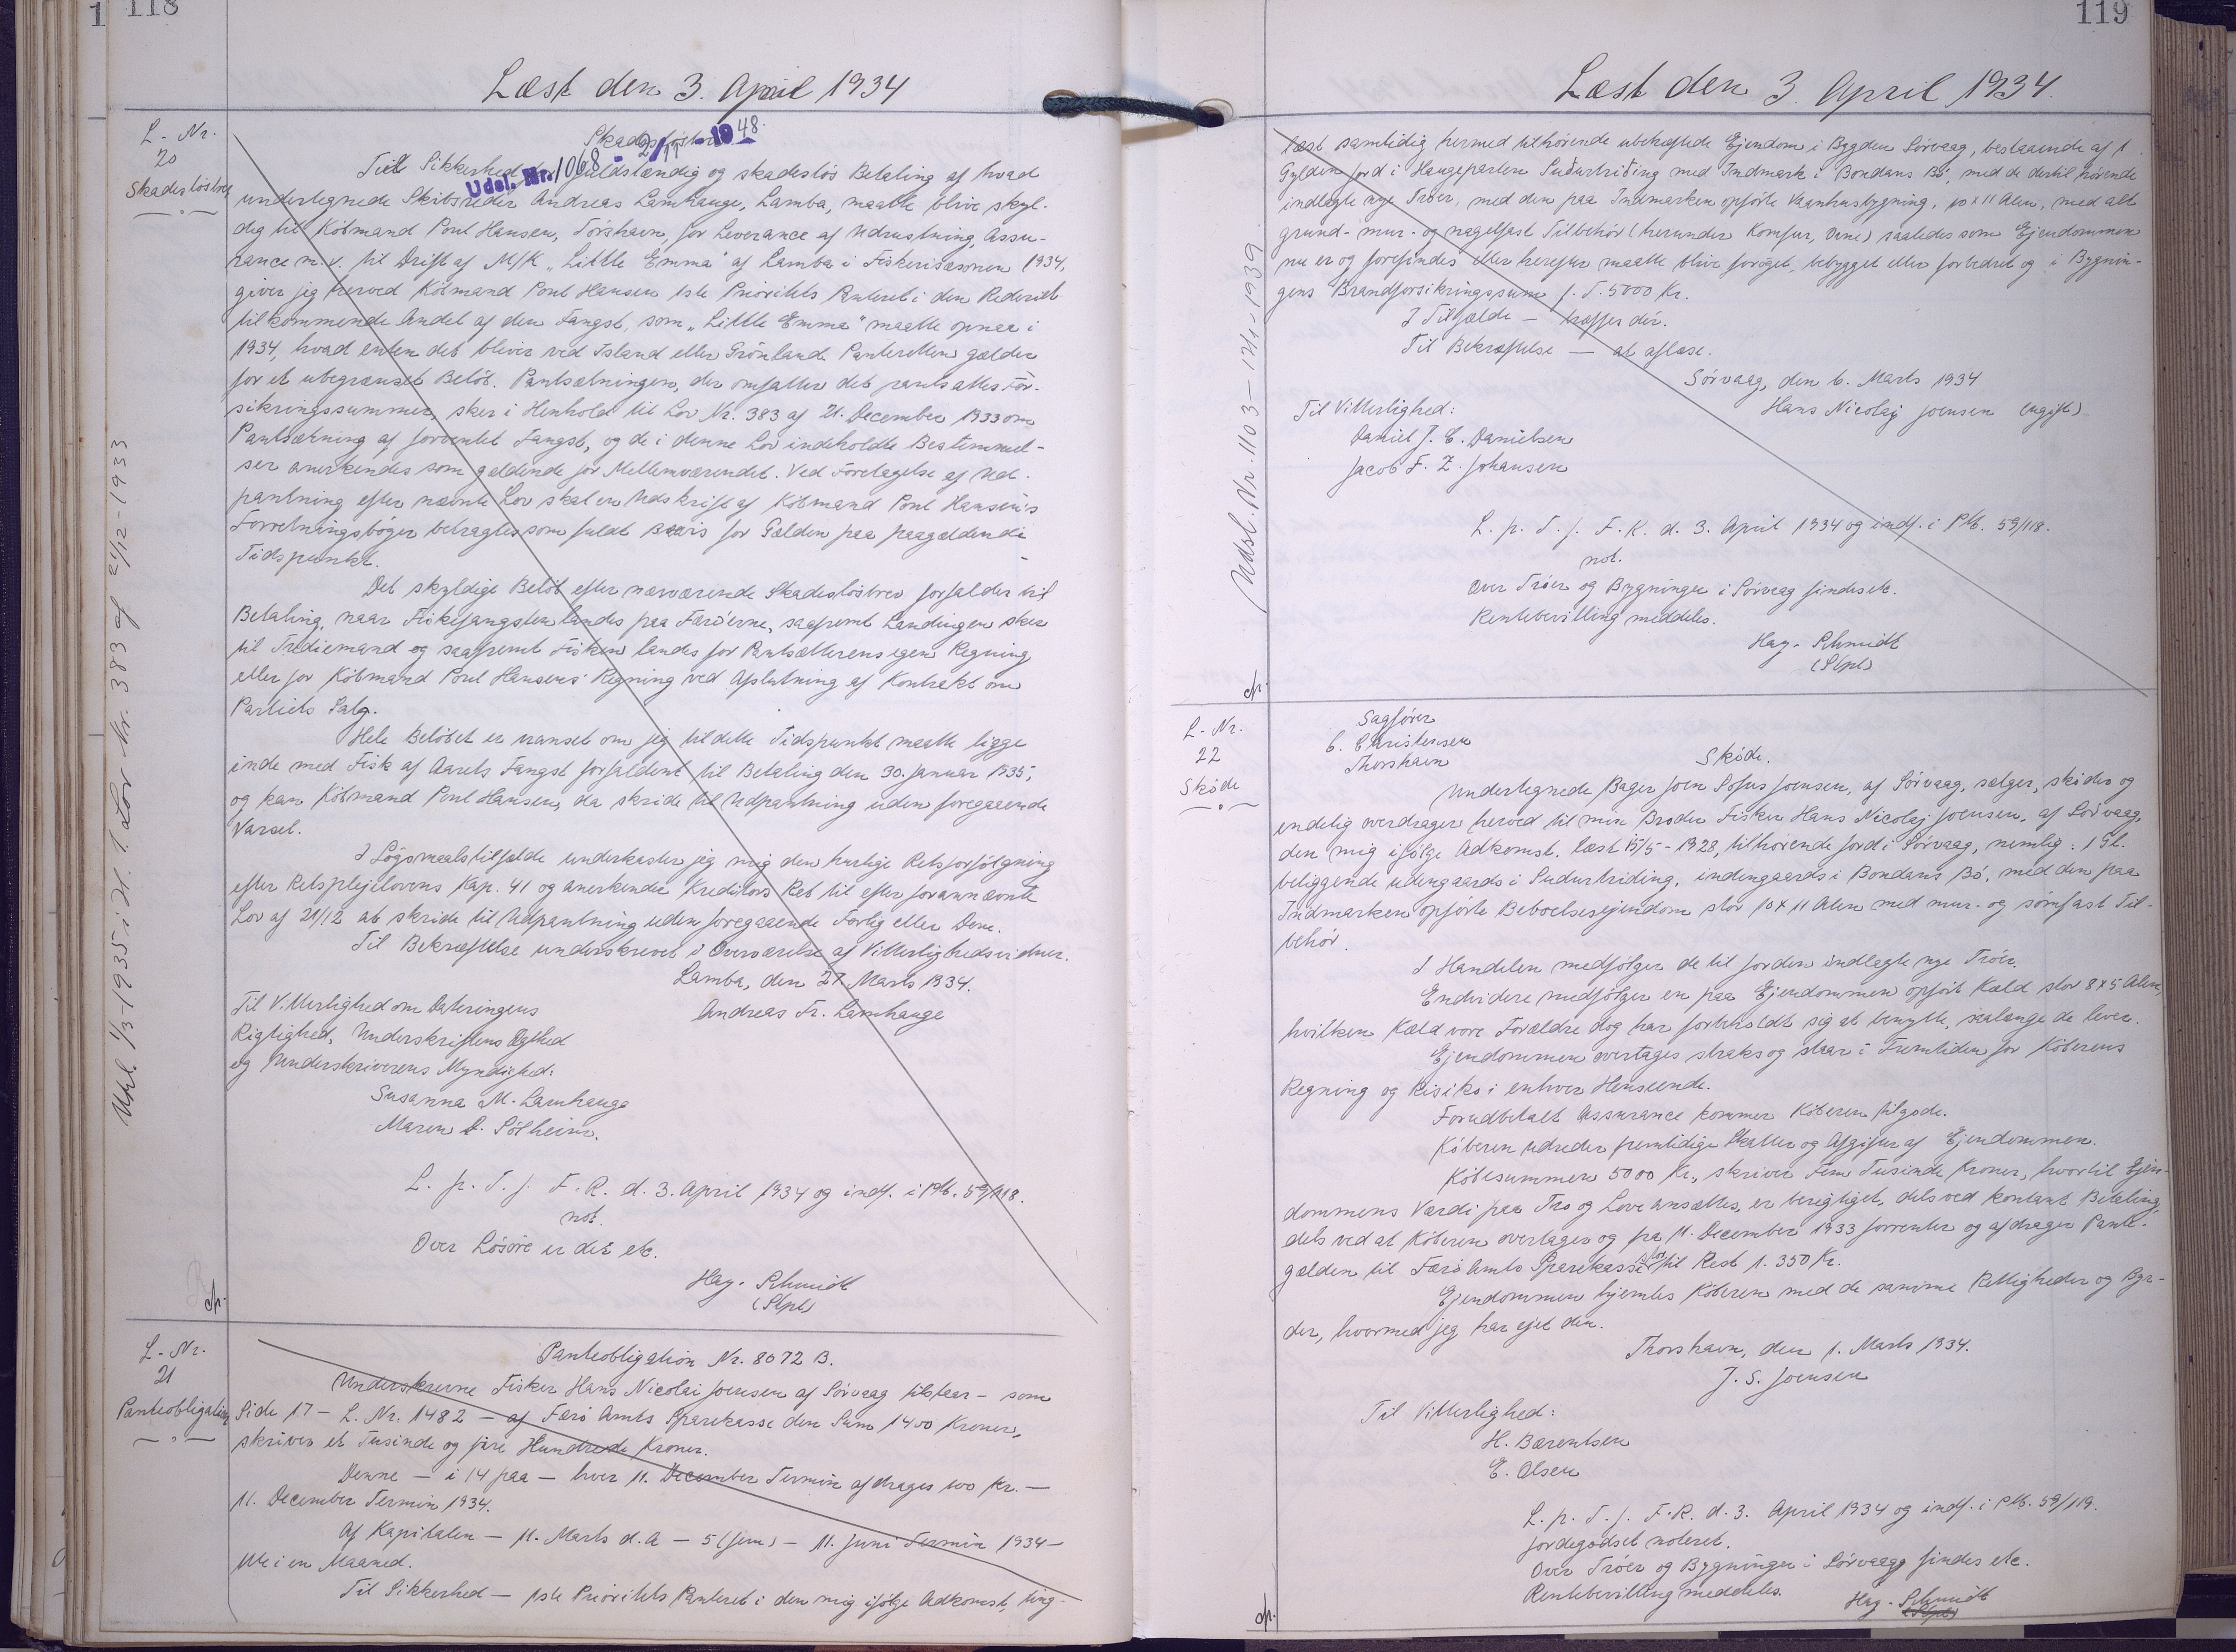 118
Læst den 3. April 1934
L-Nr.
20
Skadeslösbrev
Skadeslösbrev
Udsl. Nr. 1068 - 2/11 - 1948.
Til Sikkerhed for fuldstændig og skadeslös Betaling af hvad
undertegnede Skibsreder Andreas Lamhauge, Lamba, maatte blive skyl-
dig til Köbmand Poul Hansen, Tórshavn, for Leverance af Udrustning, Assu-
rance m.v. til Drift af M/K "Little Emma" af Lamba i Fiskerisæsonen 1934,
giver jeg herved Köbmand Poul Hansen 1ste Prioritets Panteret i den Rederiet
tilkommende Andel af den Fangst, som "Little Emma" maatte opnaa i
1934, hvad enten det bliver ved Island eller Grönland. Panteretten gælder
for et ubegrænset Belöb. Pantsætningen, der omfatter det pantsattes For-
sikringssummer, sker i Henhold til Lov Nr. 383 af 21. December 1933 om
Pantsætning af forventet Fangst, og de i denne Lov indeholdte Bestemmel-
ser anerkendes som gældende for Mellemværendet. Ved Foretagelse af Ud-
pantning efter nævnte Lov skal en Udskrift af Köbmand Poul Hansen's
Forretningsböger betragtes som fuldt Bevis for Gælden paa paagældende
Tidspunkt.
Det skyldige Belöb efter nærværende Skadeslösbrev forfalder til
Betaling, naar Fiskefangsten landes paa Færöerne, saafremt Landingen sker
til Trediemand og saafremt Fisken landes for Pantsætterens egen Regning
eller for Köbmand Poul Hansens Regning ved Afslutning af Kontrakt om
Partiets Salg.
Hele Belöbet er uanset om jeg til dette Tidspunkt maatte ligge
inde med Fisk af Aarets Fangst forfaldent til Betaling den 30. Januar 1935,
og kan Köbmand Poul Hansen, da skride til Udpantning uden foregaaende
Varsel.
I Sögsmaalstilfælde underkaster jeg mig den hurtige Retsforfölgning
efter Retsplejelovens Kap. 41 og anerkender Kreditors Ret til efter forannævnte
Lov af 21/12 at skride til Udpantning uden foregaaende Forlig eller Dom.
Til Bekræftelse underskrevet i Overværelse af Vitterlighedsvidner.
Lamba, den 27. Marts 1934.
Til Vitterlighed om Dateringens
Andreas Fr. Lamhauge
Rigtighed, Underskriftens Ægthed
og Underskriverens Myndighed:
Susanna M. Lamhauge
Maren S. Sólheim.
L. p. T. f. F. R. d. 3. April 1934 og indf. i Ptb. 59/118.
not.
Over Lösöre er det etc.
Hay-Schmidt
(Stpl)
Udsl. 1/3-1935 i H. t. Lov Nr. 383 af 21/12-1933
L-Nr.
21
Panteobligation
Panteobligation Nr. 8072 B.
Underskrevne Fisker Hans Nicolai Joensen af Sörvaag tilstaar - som
Side 17 - L. Nr. 1482 - af Færö Amts Sparekasse den Sum 1400 Kroner,
skriver et Tusinde og fire Hundrede Kroner.
Denne - i 14 paa - hver 11. December Termin afdrages 100 Kr. -
11. December Termin 1934.
Af Kapitalen - 11. Marts d.A - 5 (fem) - 11. Juni Termin 1934 -
ude i en Maaned.
Til Sikkerhed - 1ste Prioritets Panteret i den mig ifölge Adkomst, ting-
119
Læst den 3. April 1934.
læst samtidig hermed tilhörende ubehæftede Ejendom i Bygden Sörvaag, bestaaende af 1
Gylden Jord i Haugeparten Suðurtriðing med Indmark i Bondans Bö, med de dertil hörende
indlagte nye Tröer, med den paa Indmarken opförte Vaaningsbygning, 10 x 11 Alen, med alt
grund- mur- og nagelfast Tilbehör (herunder Komfur, Ovne) saaledes som Ejendommen
nu er og forefindes eller herefter maatte blive foröget, bebygget eller forbedret og i Bygnin-
gens Brandforsikringssum f. T. 5000 Kr.
I Tilfælde - træffer dér.
Til Bekræftelse - at aflæse.
Sörvaag, den 6. Marts 1934
Til Vitterlighed:
Hans Nicolaj Joensen (ugift)
Daniel J. E. Danielsen
Jacob F. Z. Johansen
L. p. T. f. F. R. d. 3. April 1934 og indf. i Ptb. 59/118.
not.
Over Tröer og Bygninger i Sörvaag findes etc.
Rentebevilling meddeles.
Hay-Schmidt
(Stpl)
Udsl. Nr. 1103 - 12/1-1939.
L-Nr.
22
Sköde
Sagförer
C. Christensen
Thorshavn
Sköde.
Undertegnede Bager Joen Sofus Joensen, af Sörvaag, sælger, sköder og
endelig overdrager herved til min Broder Fisker Hans Nicolaj Joensen, af Sörvaag,
den mig ifölge Adkomst, læst 15/5-1928, tilhörende Jord i Sörvaag, nemlig: 1 Gl.
beliggende udengaards i Sudurtriding, indengaards i Bondans Bö, med den paa
Indmarken opförte Beboelsesejendom stor 10 x 11 Alen med mur- og sömfast Til-
behör.
I Handelen medfölger de til Jorden indlagte nye Tröer.
Endvidere medfölger en paa Ejendommen opfört Kæld stor 8 x 5 Alen,
hvilken Kæld vore Forældre dog har forbeholdt sig at benytte, saalænge de lever.
Ejendommen overtages straks og staar i Fremtiden for Köberens
Regning og Risiko i enhver Henseende.
Forudbetalt Assurance kommer Köberen tilgode.
Köberen udreder fremtidige Skatter og Afgifter af Ejendommen.
Köbesummen 5000 Kr., skriver Fem Tusinde Kroner, hvortil Ejen-
dommens Værdi paa Tro og Love ansættes, er berigtiget, dels ved kontant Betaling,
dels ved at Köberen overtager og fra 11. December 1933 forrenter og afdrager Pante-
gælden til Færö Amts Sparekasse stor til Rest 1.350 Kr.
Ejendommen hjemles Köberen med de samme Rettigheder og Byr-
der, hvormed jeg har ejet den.
Thorshavn, den 1. Marts 1934.
J. S. Joensen
Til Vitterlighed:
H. Bærentsen
E. Olsen
L. p. T. f. F. R. d. 3. April 1934 og indf. i Ptb. 59/119.
Jordegodset noteret.
Over Tröer og Bygninger i Sörvaag findes etc.
Rentebevilling meddeles.
Hay-Schmidt
(Stpl)